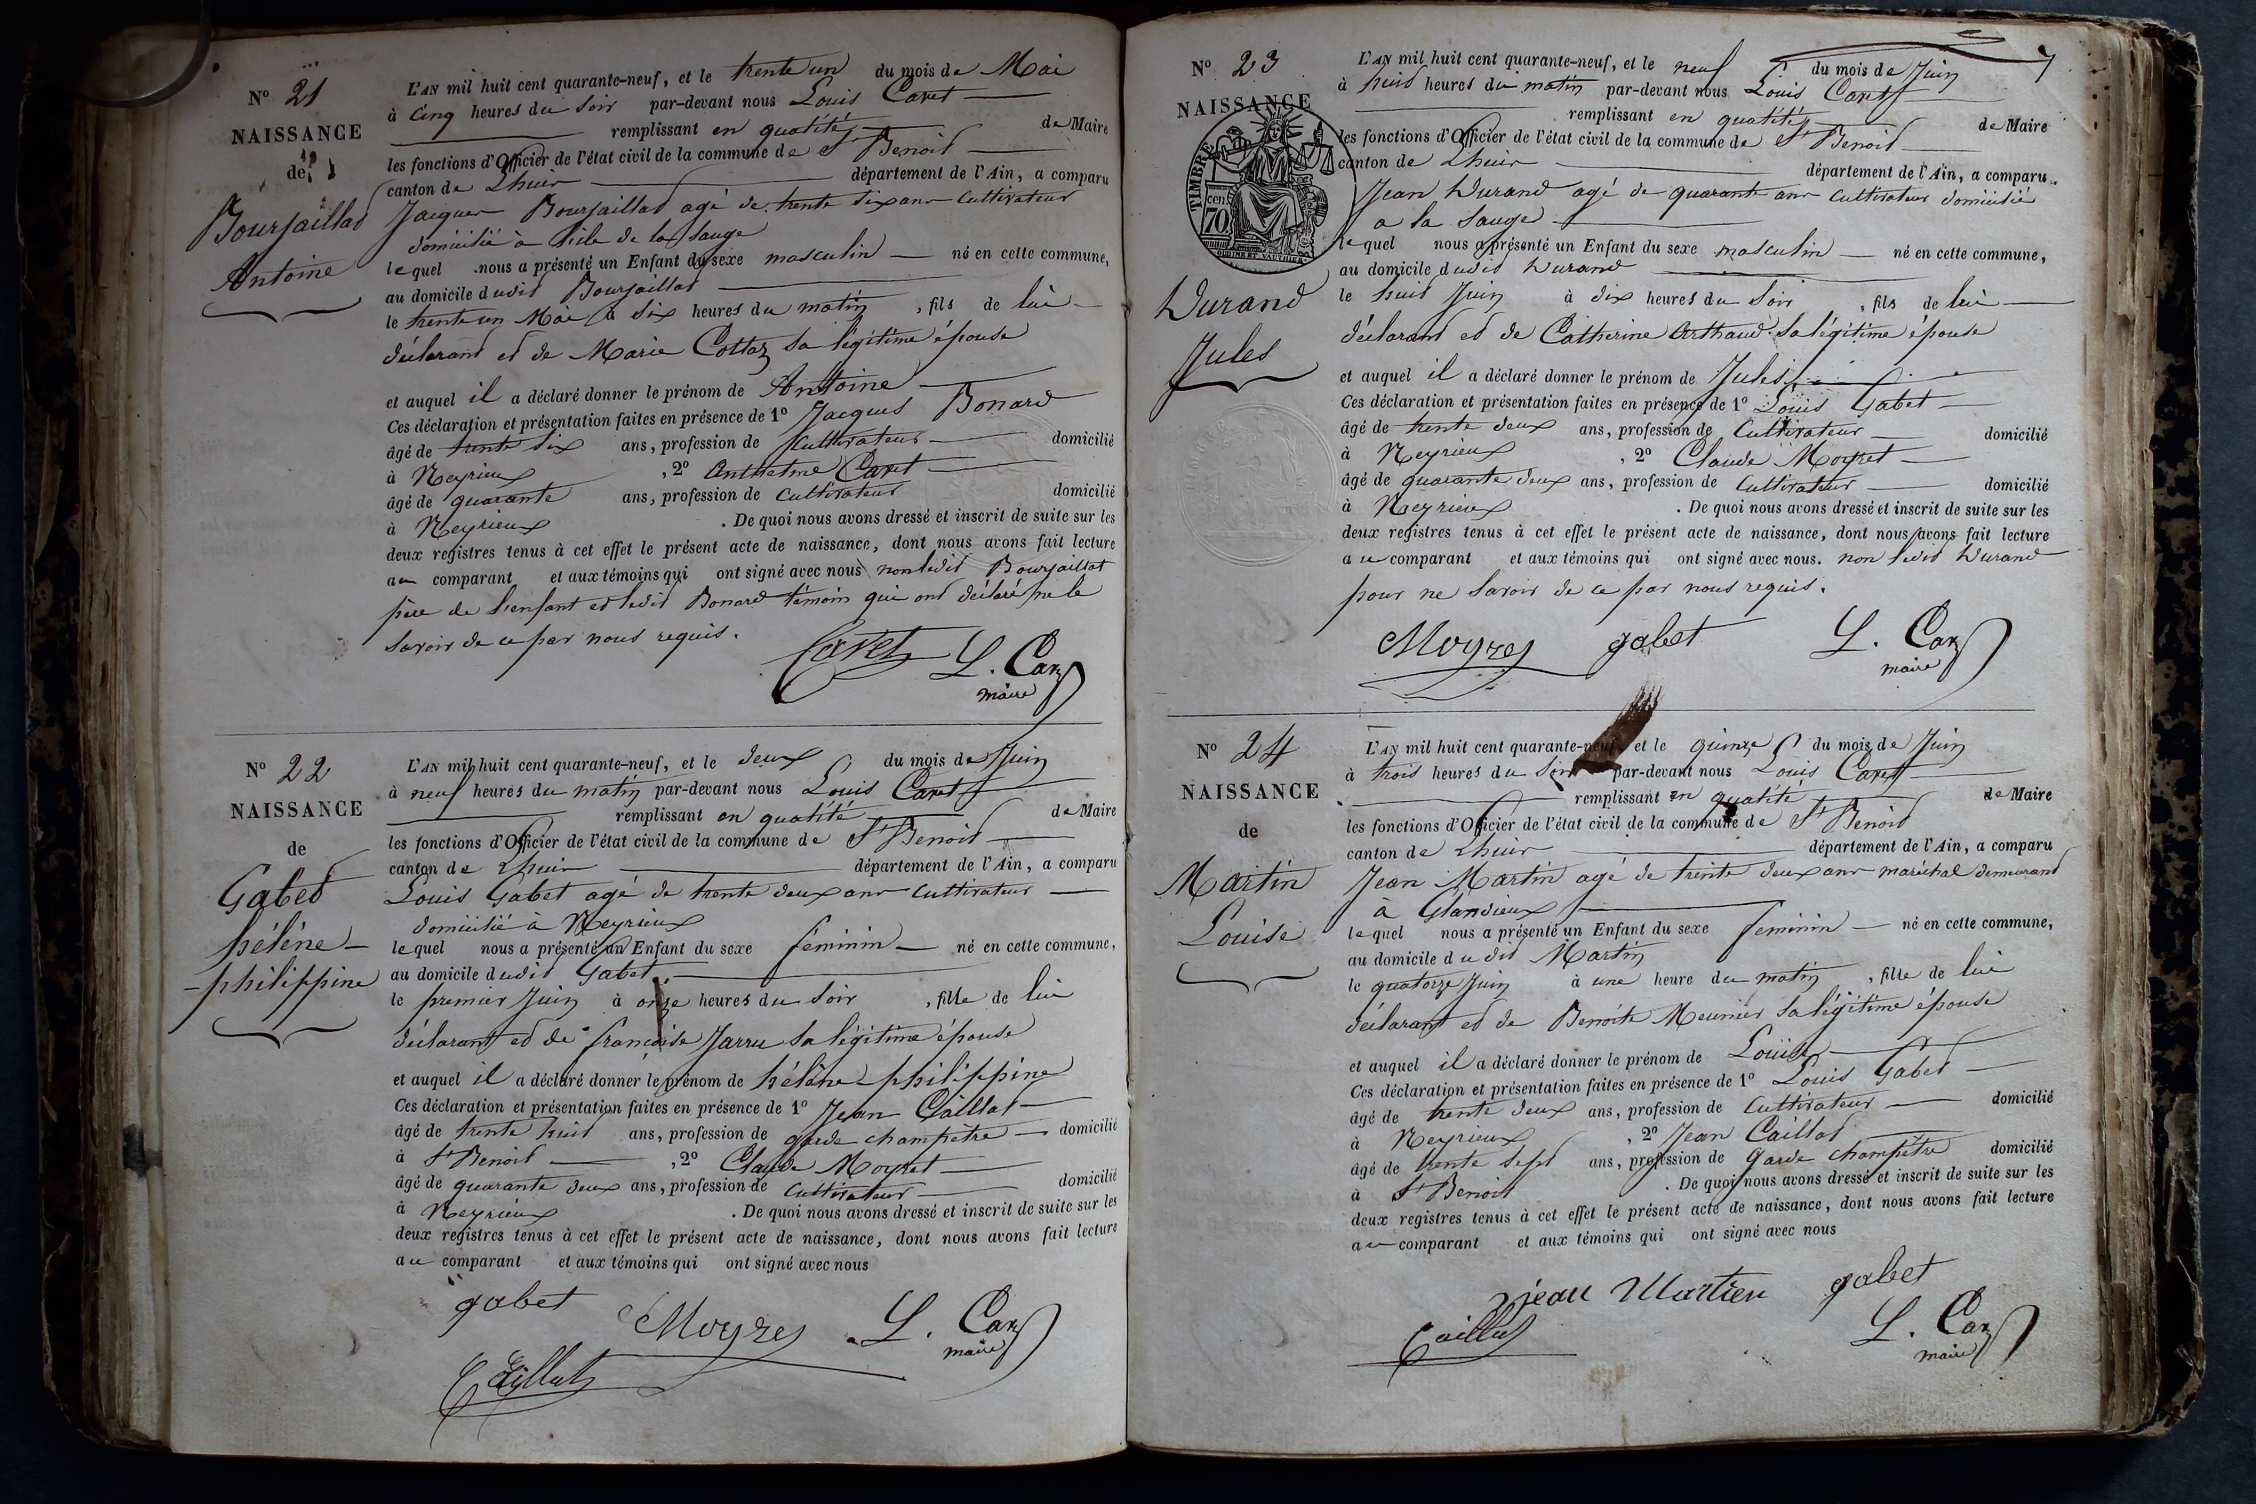 N° 21
NAISSANCE
de
Bourjaillad
Antoine
L'AN mil huit cent quarante-neuf, et le trente un du mois de Mai
à cinq heures du soir par-devant nous Louis Caret
remplissant en qualité de Maire
les fonctions d'Officier de l'état civil de la commune de St Benoit
canton de Lhuis département de l'Ain, a comparu
Jacques Bourjaillad agé de trente six ans cultivateur
domicilié à l'isle de la Sauge
lequel nous a présenté un Enfant du sexe masculin né en cette commune,
au domicile dudit Bourjaillad
le trente un Mai à six heures du matin, fils de lui
déclarant et de Marie Cottaz sa légitime épouse
et auquel il a déclaré donner le prénom de Antoine
Ces déclaration et présentation faites en présence de 1° Jacques Bonard
âgé de trente six ans, profession de cultivateur domicilié
à Neyrieux, 2° Anthelme Caret
âgé de quarante ans, profession de cultivateur domicilié
à Neyrieux. De quoi nous avons dressé et inscrit de suite sur les
deux registres tenus à cet effet le présent acte de naissance, dont nous avons fait lecture
au comparant et aux témoins qui ont signé avec nous non ledit Bourjaillat
père de l'enfant et ledit Bonard témoin qui ont déclaré ne le
savoir de ce par nous requis.
Caret L. Caret
maire
N° 22
NAISSANCE
de
Gabet
hélène
philippine
L'AN mil huit cent quarante-neuf, et le deux du mois de Juin
à neuf heures du matin par-devant nous Louis Caret
remplissant en qualité de Maire
les fonctions d'Officier de l'état civil de la commune de St Benoit
canton de Lhuis département de l'Ain, a comparu
Louis Gabet agé de trente deux ans cultivateur
domicilié à Neyrieux
lequel nous a présenté un Enfant du sexe féminin né en cette commune,
au domicile dudit Gabet
le premier Juin à onze heures du soir, fille de lui
déclarant et de françoise Jarru sa légitime épouse
et auquel il a déclaré donner le prénom de hélène philippine
Ces déclaration et présentation faites en présence de 1° Jean Caillat
âgé de trente huit ans, profession de garde champêtre domicilié
à St Benoit, 2° Claude Moyret
âgé de quarante deux ans, profession de cultivateur domicilié
à Neyrieux. De quoi nous avons dressé et inscrit de suite sur les
deux registres tenus à cet effet le présent acte de naissance, dont nous avons fait lecture
au comparant et aux témoins qui ont signé avec nous
gabet Moyret L. Caret
maire
Caillat
7
N° 23
NAISSANCE
TIMBRE
70 cen.
OUDINÉ ET VAUTHIER
Durand
Jules
L'AN mil huit cent quarante-neuf, et le neuf du mois de Juin
à huit heures du matin par-devant nous Louis Caret
remplissant en qualité de Maire
les fonctions d'Officier de l'état civil de la commune de St Benoit
canton de Lhuis département de l'Ain, a comparu
Jean Durand agé de quarante ans cultivateur domicilié
a la Sauge
lequel nous a présenté un Enfant du sexe masculin né en cette commune,
au domicile dudit Durand
le huit Juin à dix heures du soir, fils de lui
déclarant et de Catherine Arthaud sa légitime épouse
et auquel il a déclaré donner le prénom de Jules
Ces déclaration et présentation faites en présence de 1° Louis Gabet
âgé de trente deux ans, profession de cultivateur domicilié
à Neyrieux, 2° Claude Moyret
âgé de quarante deux ans, profession de cultivateur domicilié
à Neyrieux. De quoi nous avons dressé et inscrit de suite sur les
deux registres tenus à cet effet le présent acte de naissance, dont nous avons fait lecture
au comparant et aux témoins qui ont signé avec nous. non ledit Durand
pour ne savoir de ce par nous requis.
Moyret gabet L. Caret
maire
N° 24
NAISSANCE
de
Martin
Louise
L'AN mil huit cent quarante-neuf, et le quinze du mois de Juin
à trois heures du soir par-devant nous Louis Caret
remplissant en qualité de Maire
les fonctions d'Officier de l'état civil de la commune de St Benoit
canton de Lhuis département de l'Ain, a comparu
Jean Martin agé de trente deux ans maréchal demeurant
à Glandieux
lequel nous a présenté un Enfant du sexe féminin né en cette commune,
au domicile dudit Martin
le quatorze Juin à une heure du matin, fille de lui
déclarant et de Benoite Meunier sa légitime épouse
et auquel il a déclaré donner le prénom de Louise
Ces déclaration et présentation faites en présence de 1° Louis Gabet
âgé de trente deux ans, profession de cultivateur domicilié
à Neyrieux, 2° Jean Caillat
âgé de trente sept ans, profession de garde champêtre domicilié
à St Benoit. De quoi nous avons dressé et inscrit de suite sur les
deux registres tenus à cet effet le présent acte de naissance, dont nous avons fait lecture
au comparant et aux témoins qui ont signé avec nous
jean Martien gabet
Caillat L. Caret
maire